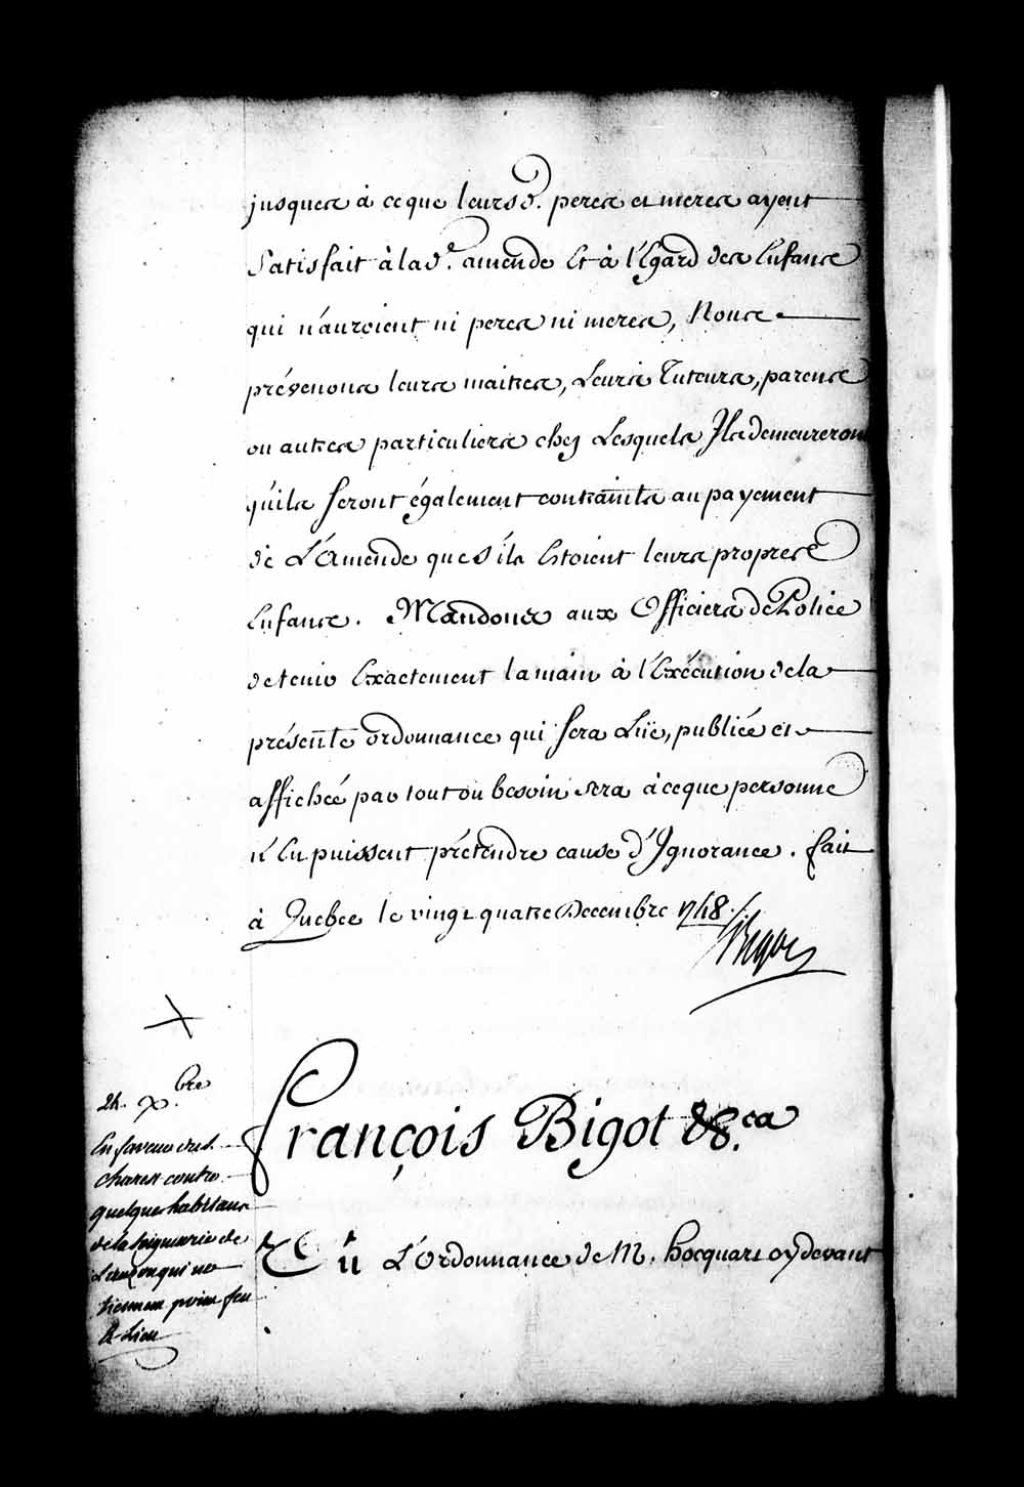 jusques à ce que leursd. peres et meres ayent
Satisfait à lad.e amende Et à l'Egard des Enfans
qui n'auroient ni peres ni meres, Nous
prévenons leurs maitres, Leurs Tuteurs, parens
ou autres particuliers chez Lesquels Ils demeureron
qu'ils seront également contraints au payement
de L'Amende que s'ils Etoient leurs propres
Enfans. Mandons aux Officiers de Police
de tenir Exactement la main à l'Exécution de la
présente ordonnance qui sera Lüe, publiée et
affichée par tout ou besoin sera à ce que personne
n'En puissent prétendre cause d'Ignorance. fait
à Quebec le vingt quatre Decembre 1748./.
Bigot
24. X.bre
En faveur du S.
Charest contre
quelques habitans
de la seigneurie de
Lauzon qui ne
tiennent point feu
& Lieu
François Bigot &c.ca
Vû L'Ordonnance de M. hocquart cy devant